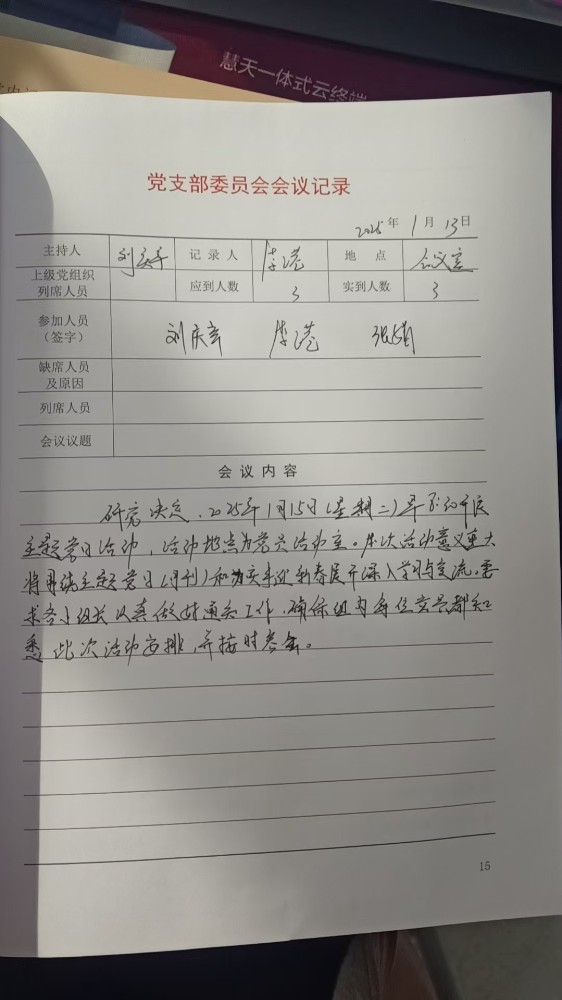 慧天一体式云终端
党支部委员会会议记录
2025年 1月 13日
主持人 刘庆 记录人 李港 地点 会议室
上级党组织列席人员 应到人数 3 实到人数 3
参加人员(签字) 刘庆 李港
缺席人员及原因
列席人员
会议议题
会议内容
研究决定,2025年1月15日(星期二)
主题党日活动,活动地点为党员活动室。本次活动意义重大
将围绕主题党日(月刊)和 迎新春展开深入学习与交流。要
求各小组长认真做好通知工作,确保组内每位党员都知
悉此次活动安排,并按时参会。
15